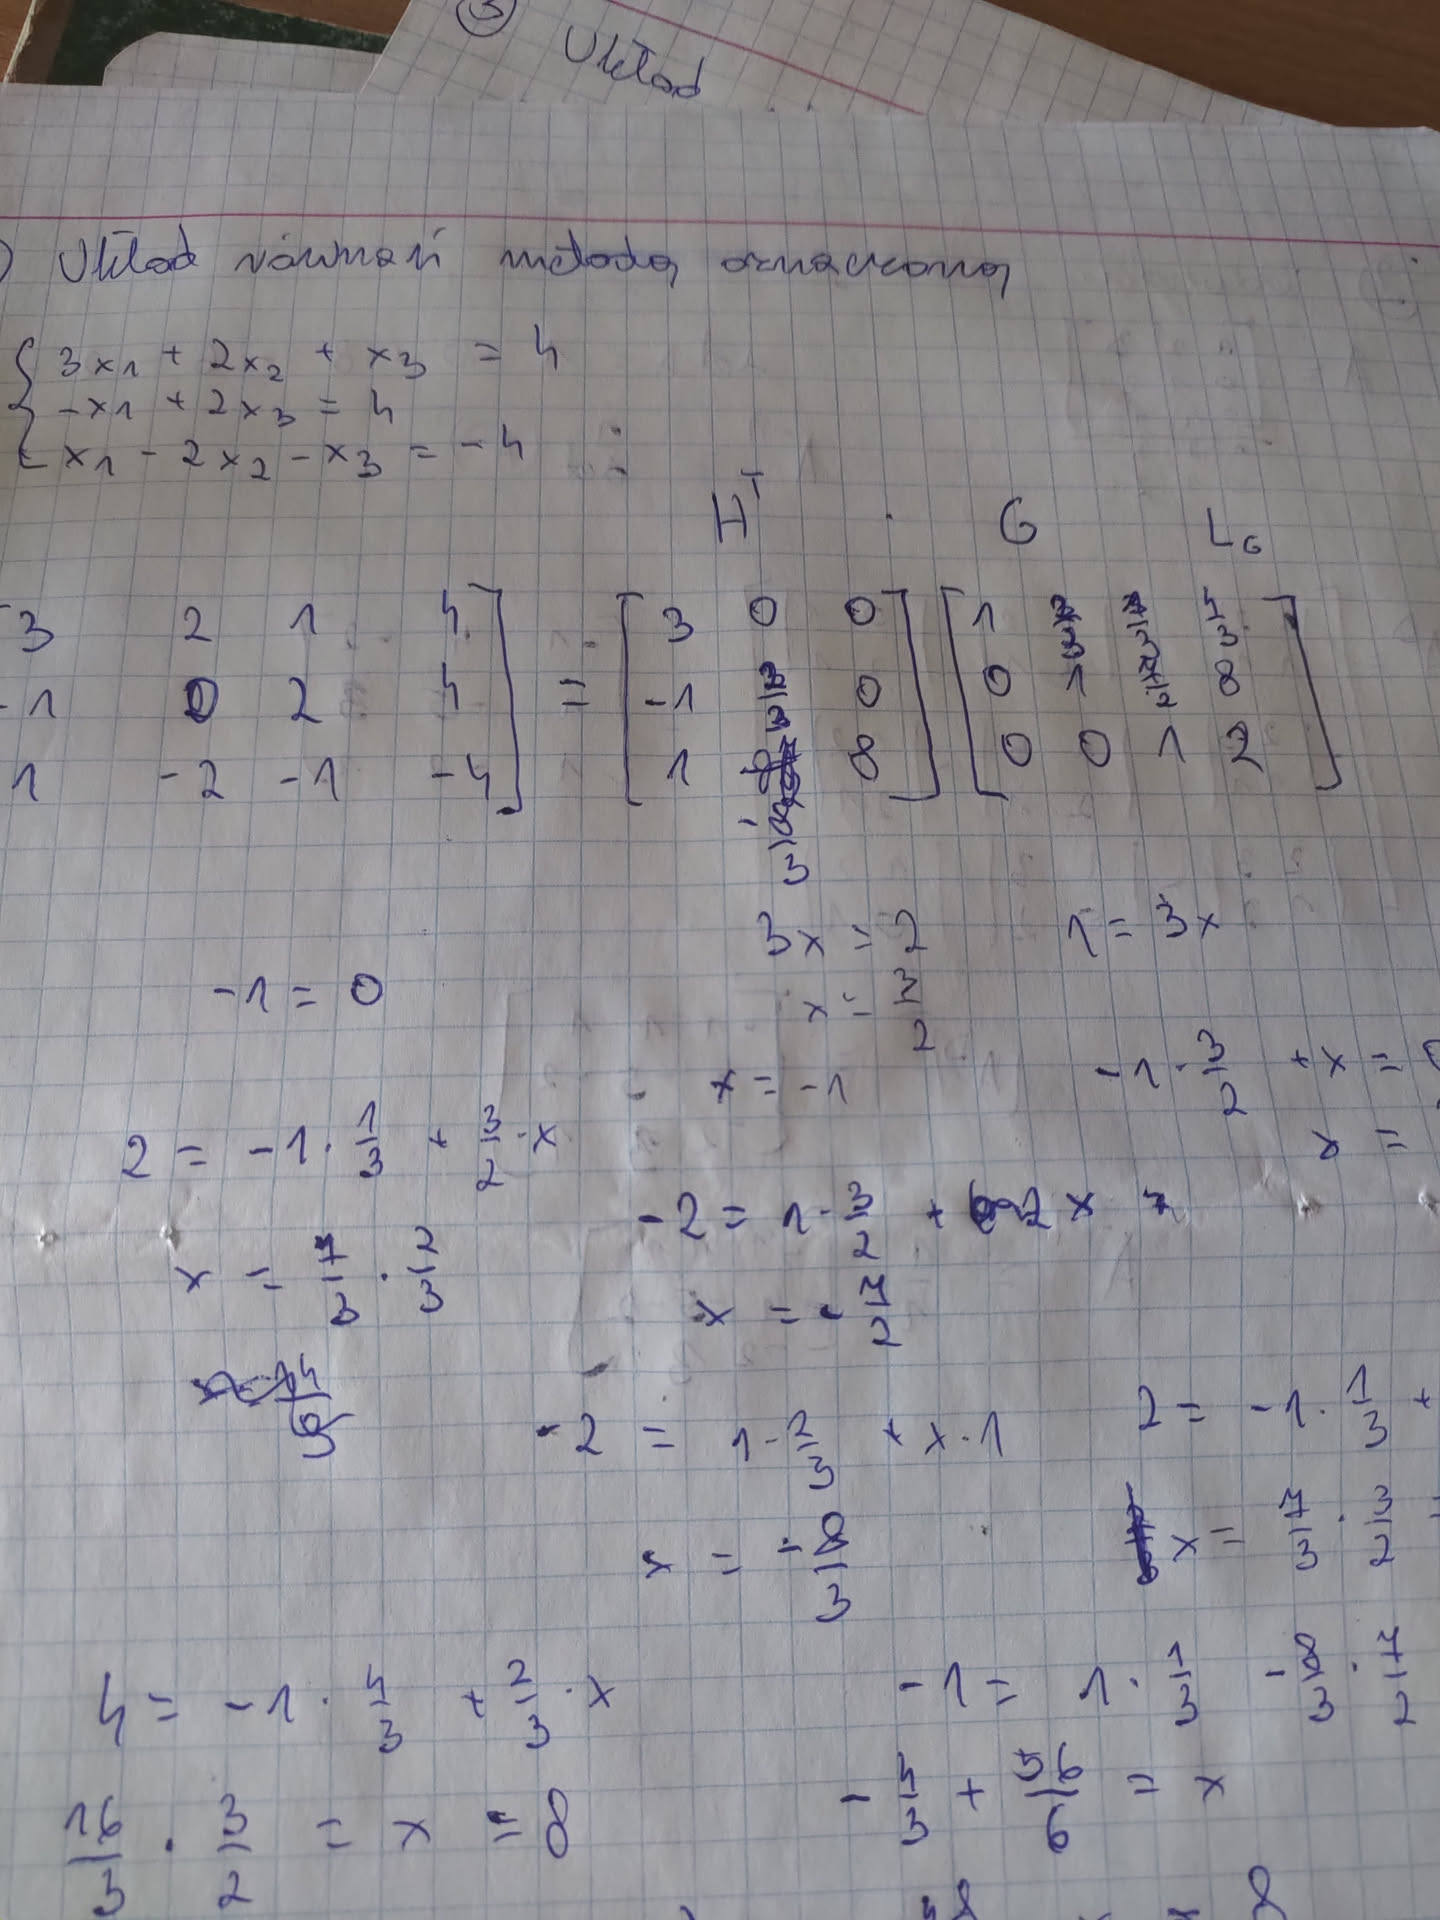 ③
Układ
) Układ równań metodą oznaczoną
3x1 + 2x2 + x3 = 4
-x1 + 2x3 = 4
x1 - 2x2 - x3 = -4
H^T · G L_G
3 2 1 4 = 3 0 0 1 4/3
-1 0 2 4 -1 0 0 1 8
1 -2 -1 -4 1 8 0 0 1 2
3x = 2 1 = 3x
-1 = 0
x = 3/2
x = -1
-1 · 3/2 + x =
x =
2 = -1 · 1/3 + 3/2 · x
-2 = 1 · 3/2 + 2x
x = 7/3 · 2/3
x = -7/2
-2 = 1 · 2/3 + x · 1
2 = -1 · 1/3 +
x = -8/3
x = 7/3 · 3/2 =
4 = -1 · 4/3 + 2/3 · x
-1 = 1 · 1/3 - 8/3 · 7/2
16/3 · 3/2 = x = 8
-4/3 + 56/6 = x
8